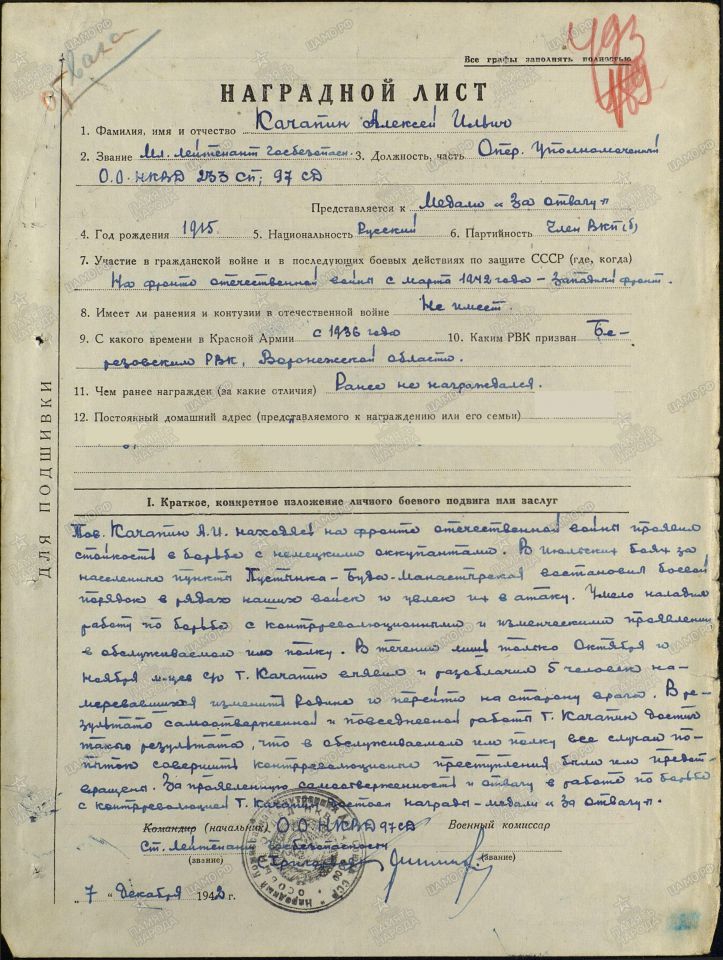 отвага
493
Все графы заполнять полностью
НАГРАДНОЙ ЛИСТ
1. Фамилия, имя и отчество Качапин Алексей Ильич
2. Звание Мл. лейтенант госбезопасн. 3. Должность, часть Опер. Уполномоченный
О.О. НКВД 233 сп; 97 сд
Представляется к Медали "За отвагу"
4. Год рождения 1915. 5. Национальность Русский 6. Партийность Член ВКП(б)
7. Участие в гражданской войне и в последующих боевых действиях по защите СССР (где, когда)
На фронте отечественной войны с марта 1942 года – Западный фронт.
8. Имеет ли ранения и контузии в отечественной войне Не имеет.
9. С какого времени в Красной Армии с 1936 года 10. Каким РВК призван Бе-
резовским РВК, Воронежской области.
11. Чем ранее награжден (за какие отличия) Ранее не награждался.
12. Постоянный домашний адрес (представляемого к награждению или его семьи)
ДЛЯ ПОДШИВКИ
I. Краткое, конкретное изложение личного боевого подвига или заслуг
Тов. Качапин А.И. находясь на фронте отечественной войны проявил
стойкость в борьбе с немецкими оккупантами. В июльских боях за
населенные пункты Пустынка-Буда-Манастырская востановил боевой
порядок в рядах наших войск и увлек их в атаку. Умело наладил
работу по борьбе с контрреволюционными и изменческими проявлении
в обслуживаемом им полку. В течении лишь только Октября и
Ноября м-цев с/г Т. Качапин выявил и разоблачил 5 человек на-
меревавшихся изменить родине и перейти на сторону врага. В ре-
зультате самоотверженной и повседневной работы Т. Качапин достиг
такого результата, что в обслуживаемом им полку все случаи по-
пыток совершить контрреволюционные преступления были им предот-
вращены. За проявленную самоотверженность и отвагу в работе по борьбе
с контрреволюцией Т. Качапин достоен награды - медали "За отвагу".
Командир (начальник) ОО НКВД 97 СД Военный комиссар
Ст. Лейтенант госбезопасности
(звание) (звание)
"7" декабря 1942 г.